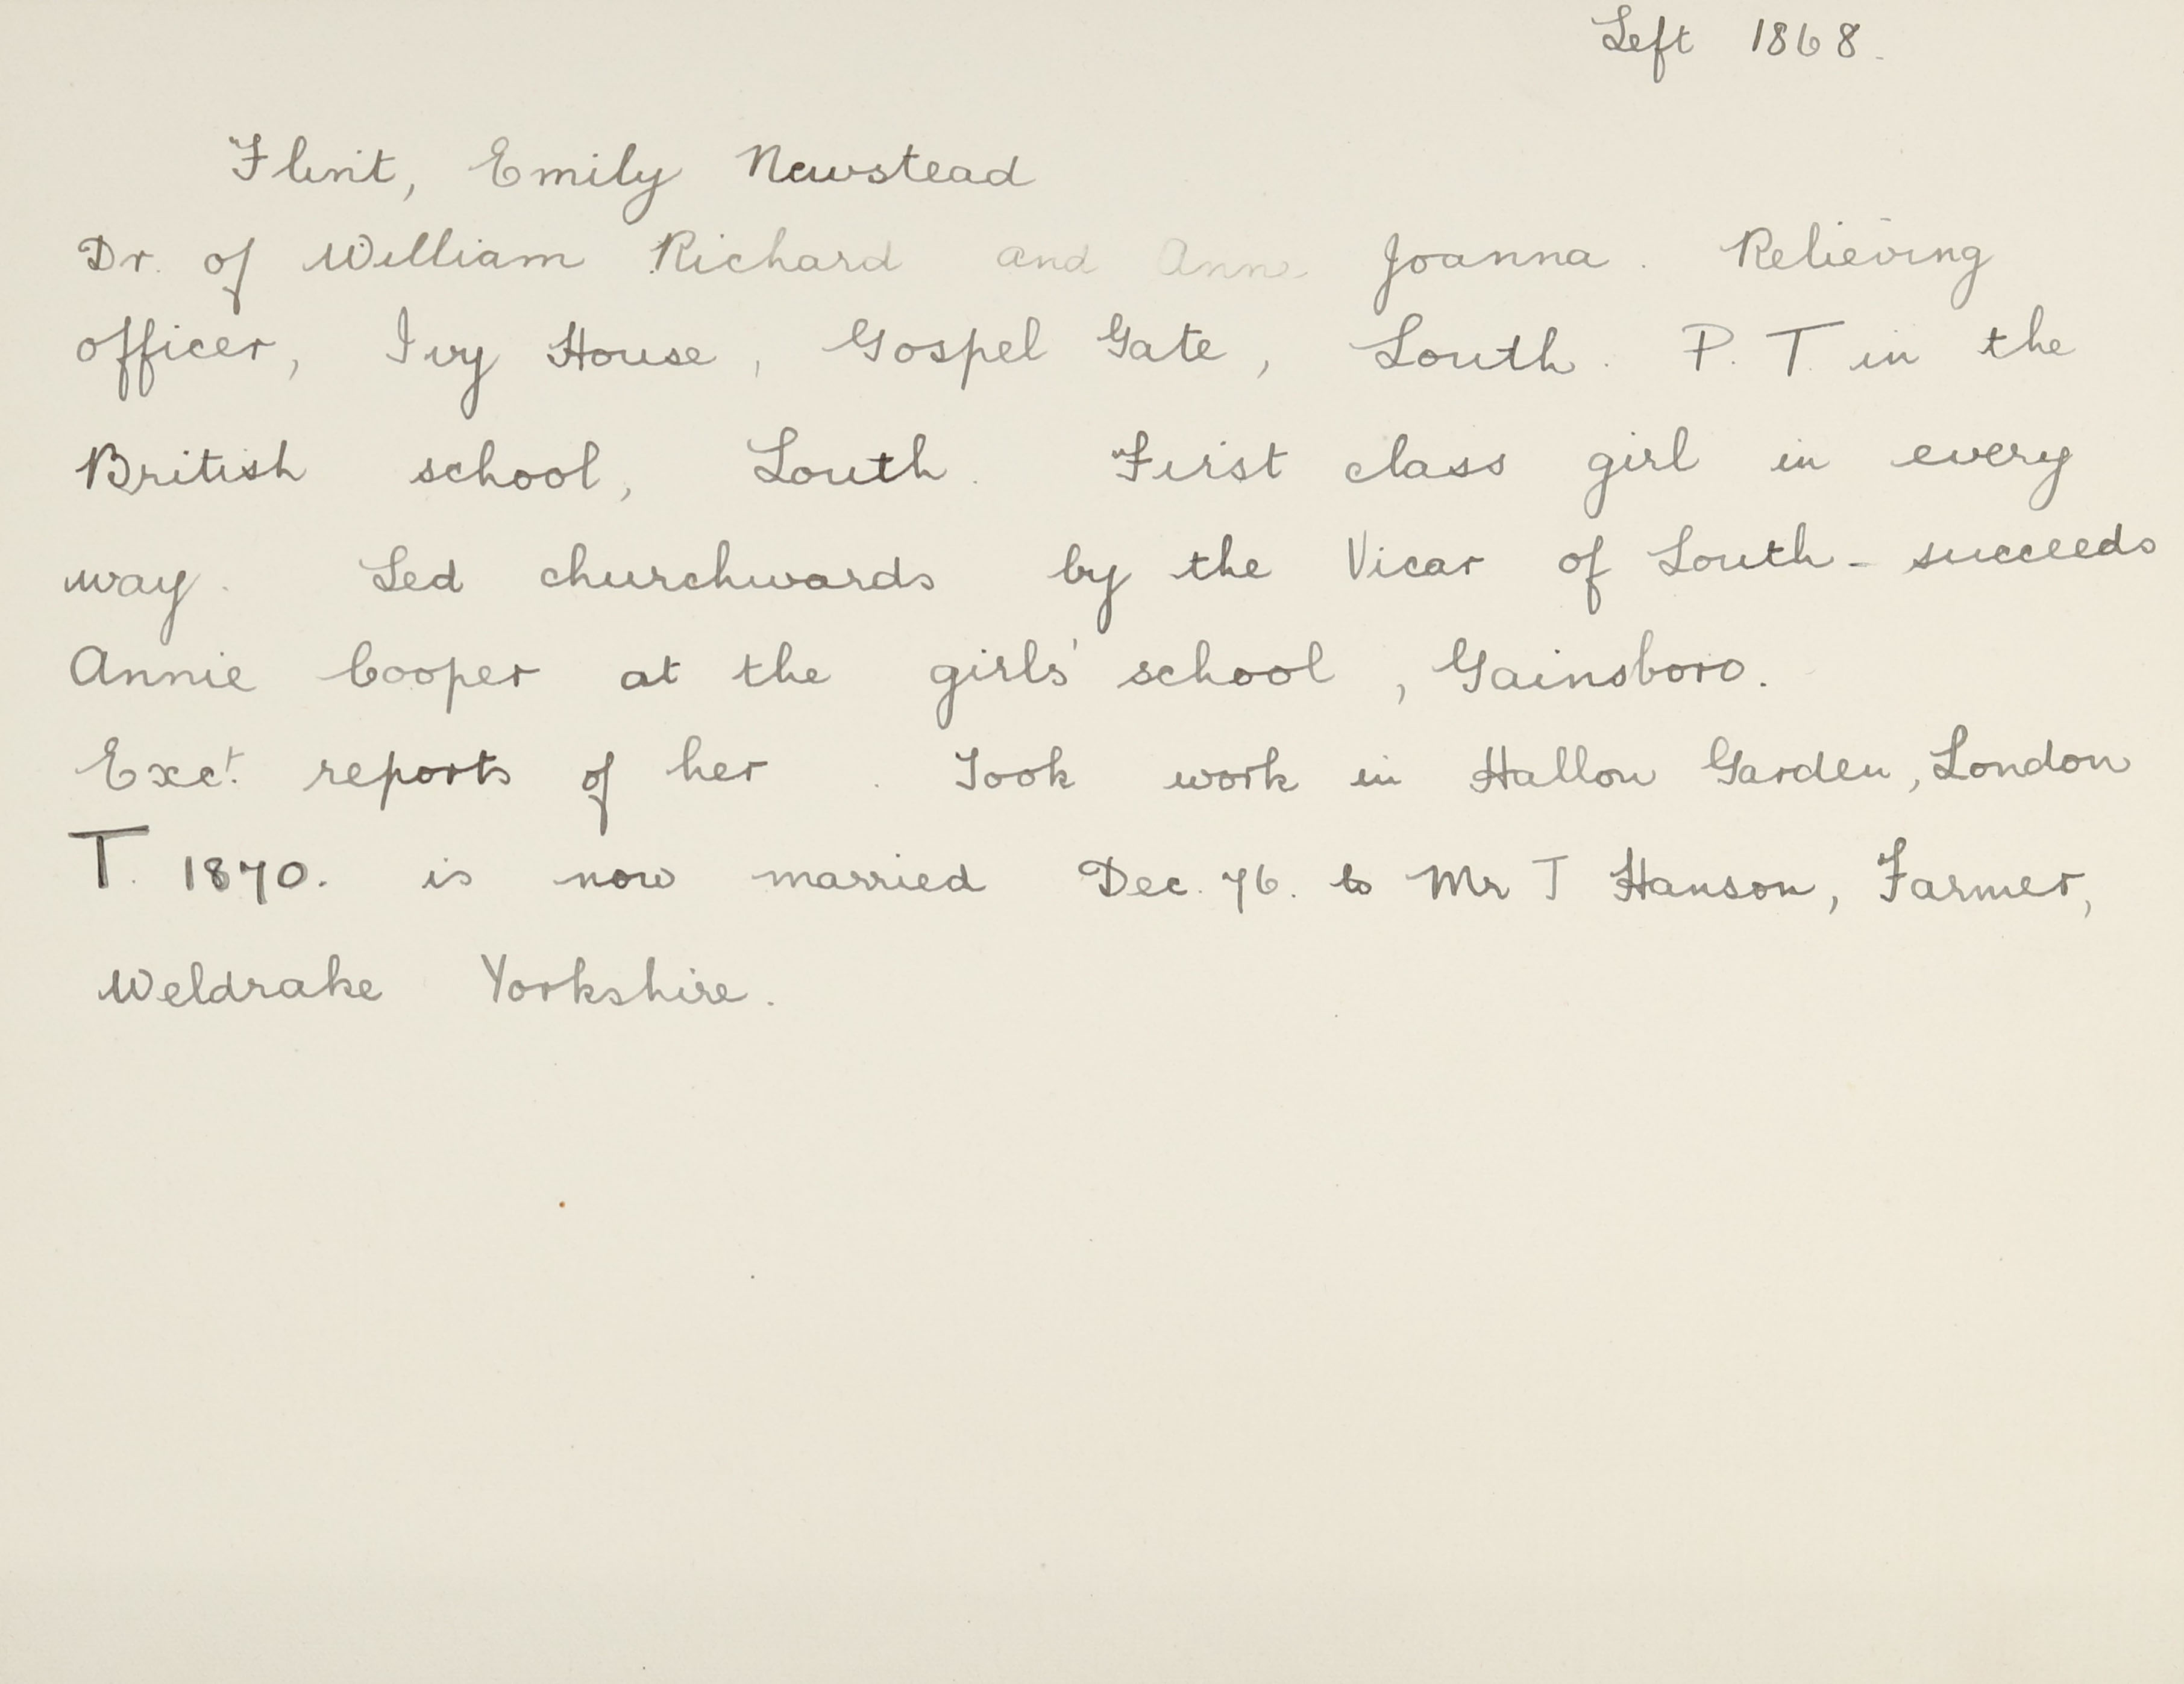 Left 1868.
Flint, Emily Newstead
Dr. of William Richard and Anne Joanna. Relieving
officer, Ivy House, Gospel Gate, Louth. P. T. in the
British school, Louth. First class girl in every
way. Led churchwards by the Vicar of Louth - succeeds
Annie Cooper at the girls' school, Gainsboro.
Exct. reports of her. Took work in Hallon Garden, London
T. 1870. is now married Dec. 76. to Mr T Hanson, Farmer,
Weldrake Yorkshire.